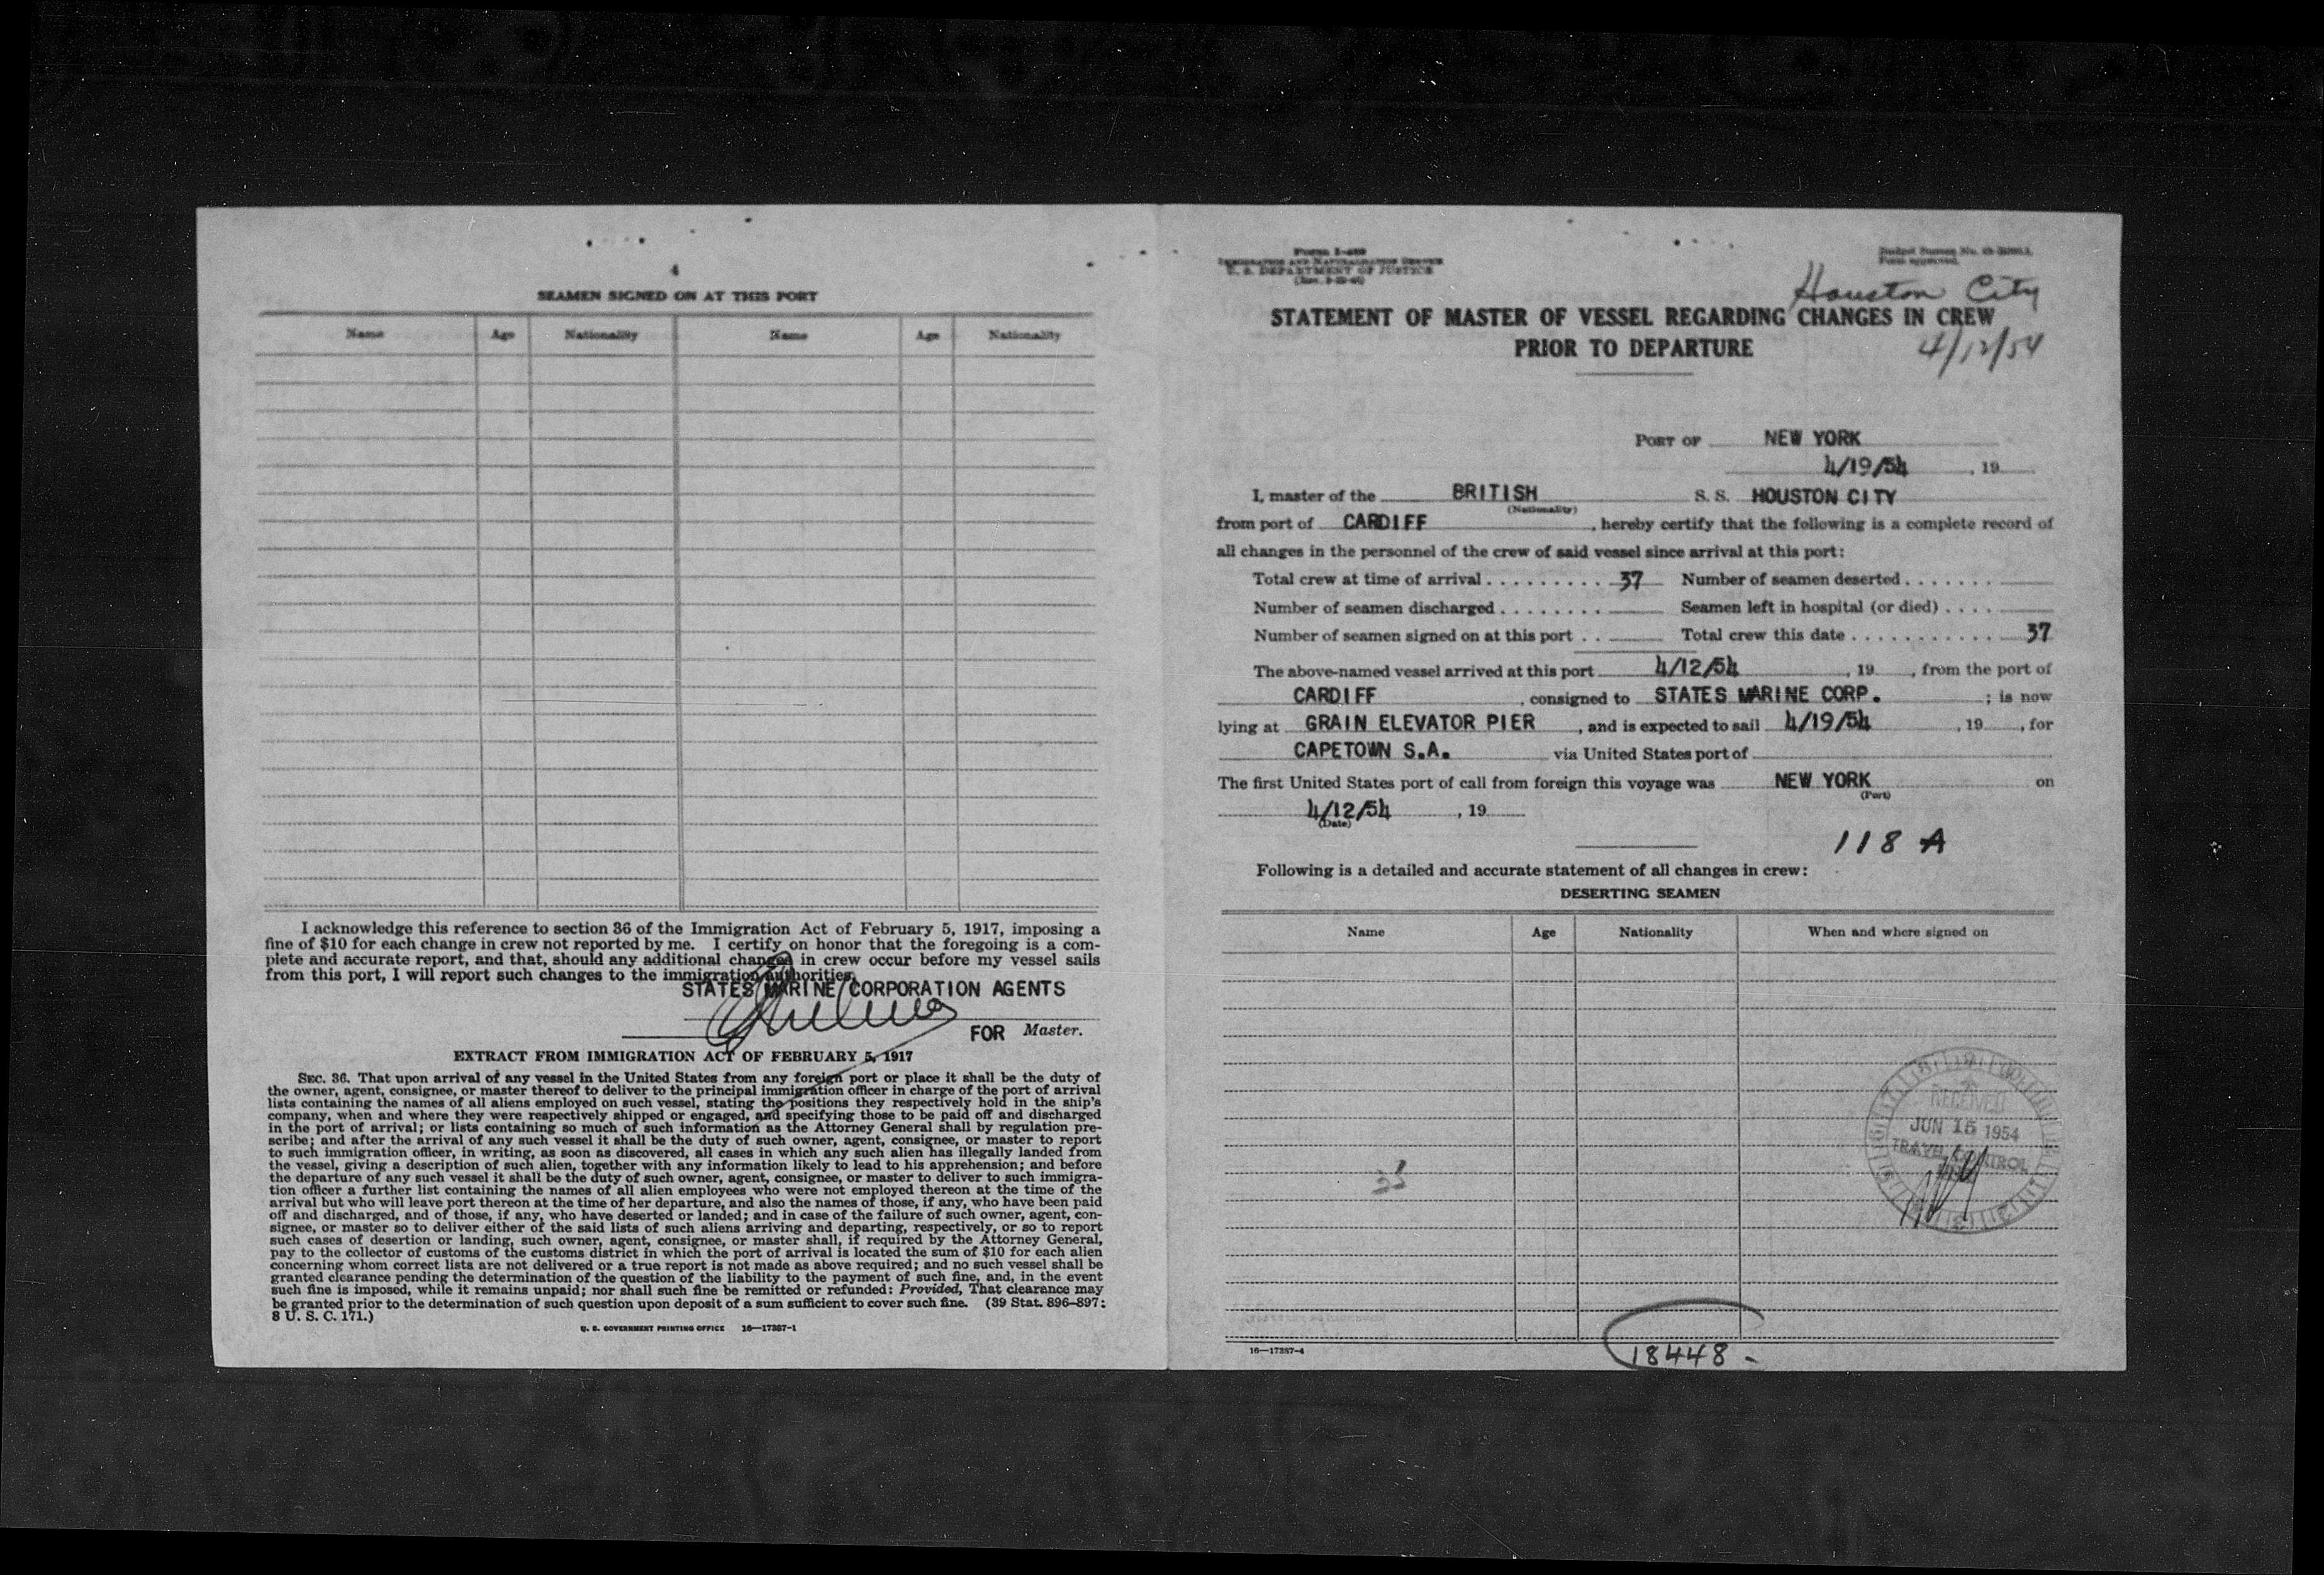 4
SEAMEN SIGNED ON AT THIS PORT
Name Age Nationality Name Age Nationality
I acknowledge this reference to section 36 of the Immigration Act of February 5, 1917, imposing a
fine of $10 for each change in crew not reported by me. I certify on honor that the foregoing is a com-
plete and accurate report, and that, should any additional changes in crew occur before my vessel sails
from this port, I will report such changes to the immigration authorities.
STATES MARINE CORPORATION AGENTS
FOR Master.
EXTRACT FROM IMMIGRATION ACT OF FEBRUARY 5, 1917
SEC. 36. That upon arrival of any vessel in the United States from any foreign port or place it shall be the duty of
the owner, agent, consignee, or master thereof to deliver to the principal immigration officer in charge of the port of arrival
lists containing the names of all aliens employed on such vessel, stating the positions they respectively hold in the ship's
company, when and where they were respectively shipped or engaged, and specifying those to be paid off and discharged
in the port of arrival; or lists containing so much of such information as the Attorney General shall by regulation pre-
scribe; and after the arrival of any such vessel it shall be the duty of such owner, agent, consignee, or master to report
to such immigration officer, in writing, as soon as discovered, all cases in which any such alien has illegally landed from
the vessel, giving a description of such alien, together with any information likely to lead to his apprehension; and before
the departure of any such vessel it shall be the duty of such owner, agent, consignee, or master to deliver to such immigra-
tion officer a further list containing the names of all alien employees who were not employed thereon at the time of the
arrival but who will leave port thereon at the time of her departure, and also the names of those, if any, who have been paid
off and discharged, and of those, if any, who have deserted or landed; and in case of the failure of such owner, agent, con-
signee, or master so to deliver either of the said lists of such aliens arriving and departing, respectively, or so to report
such cases of desertion or landing, such owner, agent, consignee, or master shall, if required by the Attorney General,
pay to the collector of customs of the customs district in which the port of arrival is located the sum of $10 for each alien
concerning whom correct lists are not delivered or a true report is not made as above required; and no such vessel shall be
granted clearance pending the determination of the question of the liability to the payment of such fine, and, in the event
such fine is imposed, while it remains unpaid; nor shall such fine be remitted or refunded: Provided, That clearance may
be granted prior to the determination of such question upon deposit of a sum sufficient to cover such fine. (39 Stat. 896-897;
8 U. S. C. 171.)
U. S. GOVERNMENT PRINTING OFFICE 16—17387-1
IMMIGRATION AND NATURALIZATION SERVICE
U. S. DEPARTMENT OF JUSTICE
Form approved.
Houston City
STATEMENT OF MASTER OF VESSEL REGARDING CHANGES IN CREW
PRIOR TO DEPARTURE
4/12/54
PORT OF NEW YORK
4/19/54, 19
I, master of the BRITISH S. S. HOUSTON CITY
(Nationality)
from port of CARDIFF, hereby certify that the following is a complete record of
all changes in the personnel of the crew of said vessel since arrival at this port:
Total crew at time of arrival . . . . . . . . . 37 Number of seamen deserted . . . . . . .
Number of seamen discharged . . . . . . . . Seamen left in hospital (or died) . . . .
Number of seamen signed on at this port . . Total crew this date . . . . . . . . . . . . 37
The above-named vessel arrived at this port 4/12/54, 19, from the port of
CARDIFF, consigned to STATES MARINE CORP. ; is now
lying at GRAIN ELEVATOR PIER, and is expected to sail 4/19/54, 19, for
CAPETOWN S.A. via United States port of
The first United States port of call from foreign this voyage was NEW YORK on
(Port)
4/12/54, 19
(Date)
118 A
Following is a detailed and accurate statement of all changes in crew:
DESERTING SEAMEN
Name Age Nationality When and where signed on
RECEIVED
JUN 15 1954
TRAVEL CONTROL
16—17387-4
18448 -